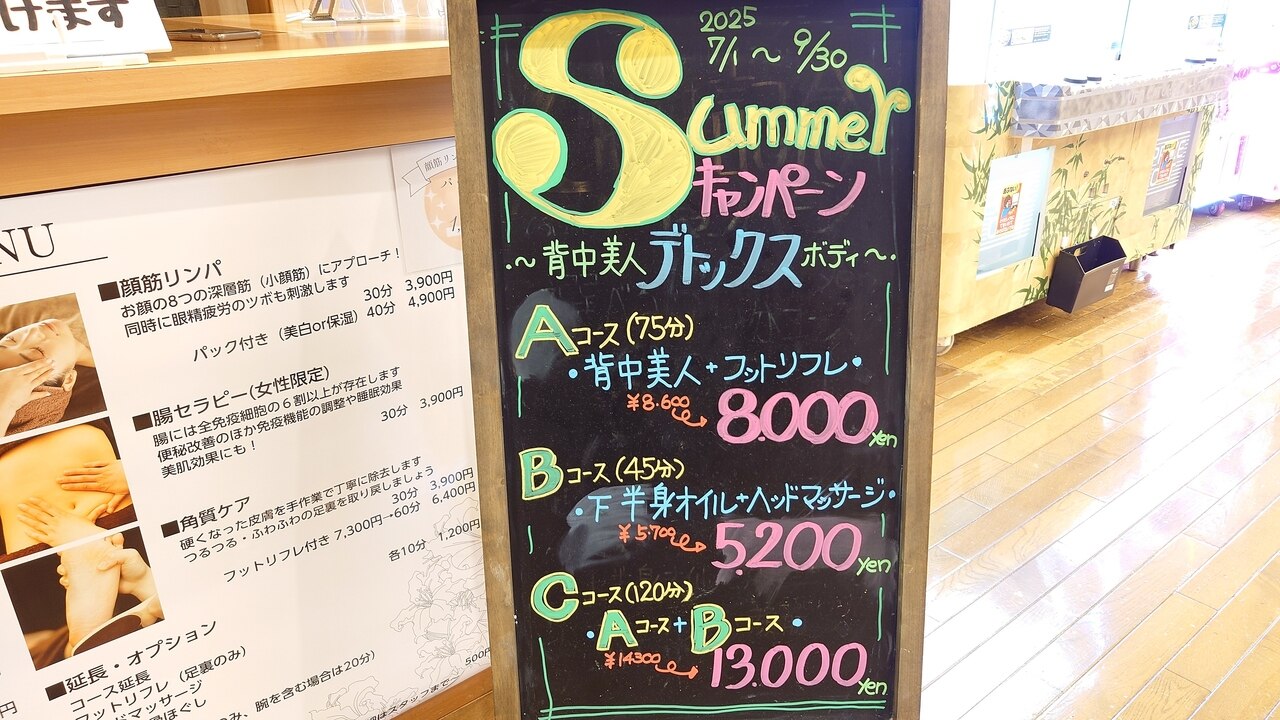 けます
NU
■顔筋リンパ
お顔の8つの深層筋（小顔筋）にアプローチ！
同時に眼精疲労のツボも刺激します
30分 3,900円
パック付き（美白or保湿）40分 4,900円
■腸セラピー(女性限定)
腸には全免疫細胞の６割以上が存在します
便秘改善のほか免疫機能の調整や睡眠効果
美肌効果にも！
30分 3,900円
■角質ケア
硬くなった皮膚を手作業で丁寧に除去します
つるつる・ふわふわの足裏を取り戻しましょう
30分 3,900円
フットリフレ付き 7,300円~60分 6,400円
■延長・オプション
各10分 1,200円
コース延長
フットリフレ（足裏のみ）
腕を含む場合は20分)
500円
2025
7/1 〜 9/30
Summer
キャンペーン
〜背中美人デトックスボディ〜
Aコース(75分)
・背中美人+フットリフレ・
¥8.600 8.000yen
Bコース(45分)
・下半身オイル+ヘッドマッサージ・
¥5.700 5.200yen
Cコース(120分)
・Aコース+Bコース・
¥14300 13.000yen